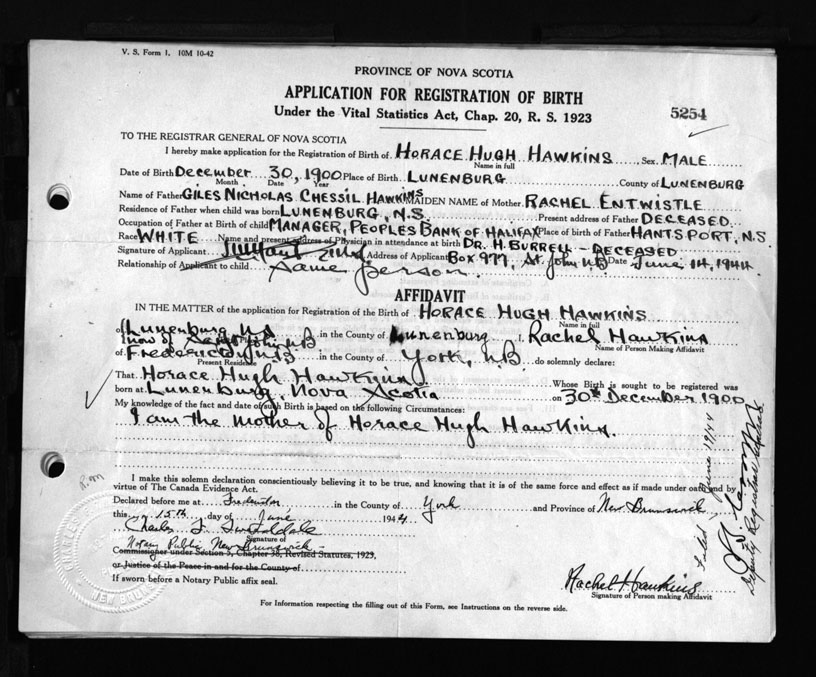 V. S. Form 1. 10M 10-42
PROVINCE OF NOVA SCOTIA
APPLICATION FOR REGISTRATION OF BIRTH
Under the Vital Statistics Act, Chap. 20, R. S. 1923
5254
TO THE REGISTRAR GENERAL OF NOVA SCOTIA
I hereby make application for the Registration of Birth of HORACE HUGH HAWKINS Sex MALE
Name in full
Date of Birth December 30, 1900 Place of Birth LUNENBURG County of LUNENBURG
Month Date Year
Name of Father GILES NICHOLAS CHESSIL HAWKINS MAIDEN NAME of Mother RACHEL ENTWISTLE
Residence of Father when child was born LUNENBURG, N.S. Present address of Father DECEASED
Occupation of Father at Birth of child MANAGER, PEOPLES BANK OF HALIFAX Place of birth of Father HANTSPORT, N.S
Race WHITE Name and present address of Physician in attendance at birth DR. H. BURRELL - DECEASED
Signature of Applicant Address of Applicant Box 977, St. John N.B Date June 14, 1944
Relationship of Applicant to child Same person.
AFFIDAVIT
IN THE MATTER of the application for Registration of the Birth of HORACE HUGH HAWKINS
Name in full
of Lunenburg N.S in the County of Lunenburg I, Rachel Hawkins
(now of John NB
Name of Person Making Affidavit
of Fredericton NB in the County of York, N.B. do solemnly declare:
Present Residence
That Horace Hugh Hawkins Whose Birth is sought to be registered was
born at Lunenburg, Nova Scotia on 30th December 1900
My knowledge of the fact and date of such Birth is based on the following Circumstances:
I am the mother of Horace Hugh Hawkins.
I make this solemn declaration conscientiously believing it to be true, and knowing that it is of the same force and effect as if made under oath and by
virtue of The Canada Evidence Act.
Declared before me at Fredericton in the County of York and Province of New Brunswick
this 15th day of June 1944
Charles F.
Signature of
Notary Public New Brunswick
Commissioner under Section 5, Chapter 38, Revised Statutes, 1923,
or Justice of the Peace in and for the County of
If sworn before a Notary Public affix seal.
Rachel Hawkins
Signature of Person making Affidavit
For Information respecting the filling out of this Form, see Instructions on the reverse side.
Filed June 19/44
Deputy Registrar General
CHARLES
NEW BRUN